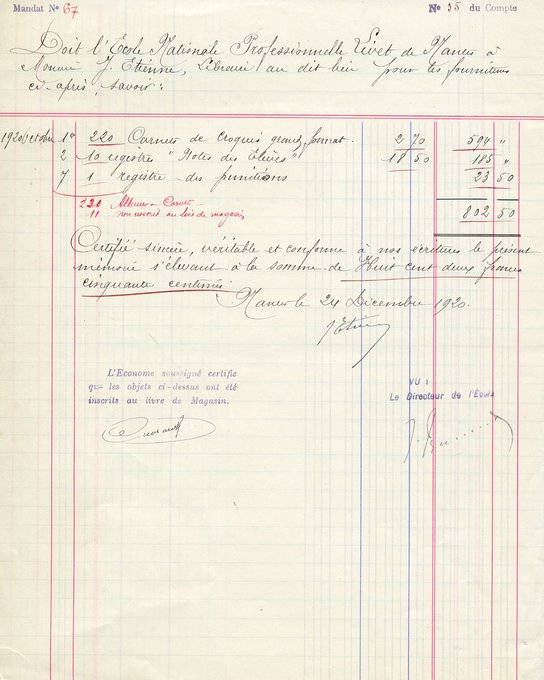 Mandat No 67
No 35 du Compte
Doit l'Ecole Nationale Professionnelle Livet de Nantes à
Monsieur J. Etienne, Libraire au dit lieu pour les fournitures
ci-après, savoir :
1920 1er 220 Carnets de croquis grand format. 2 70 594 "
2 10 registres "Notes des Elèves" 18 50 185 "
7 1 registre des punitions 23 50
221 Carnet
11 au livre de magasin
802 50
Certifié sincère, véritable et conforme à nos écritures le présent
mémoire s'élevant à la somme de Huit cent deux francs
cinquante centimes.
Nantes le 24 Décembre 1920.
L'Econome soussigné certifie
que les objets ci-dessus ont été
inscrits au livre de Magasin.
VU :
Le Directeur de l'École